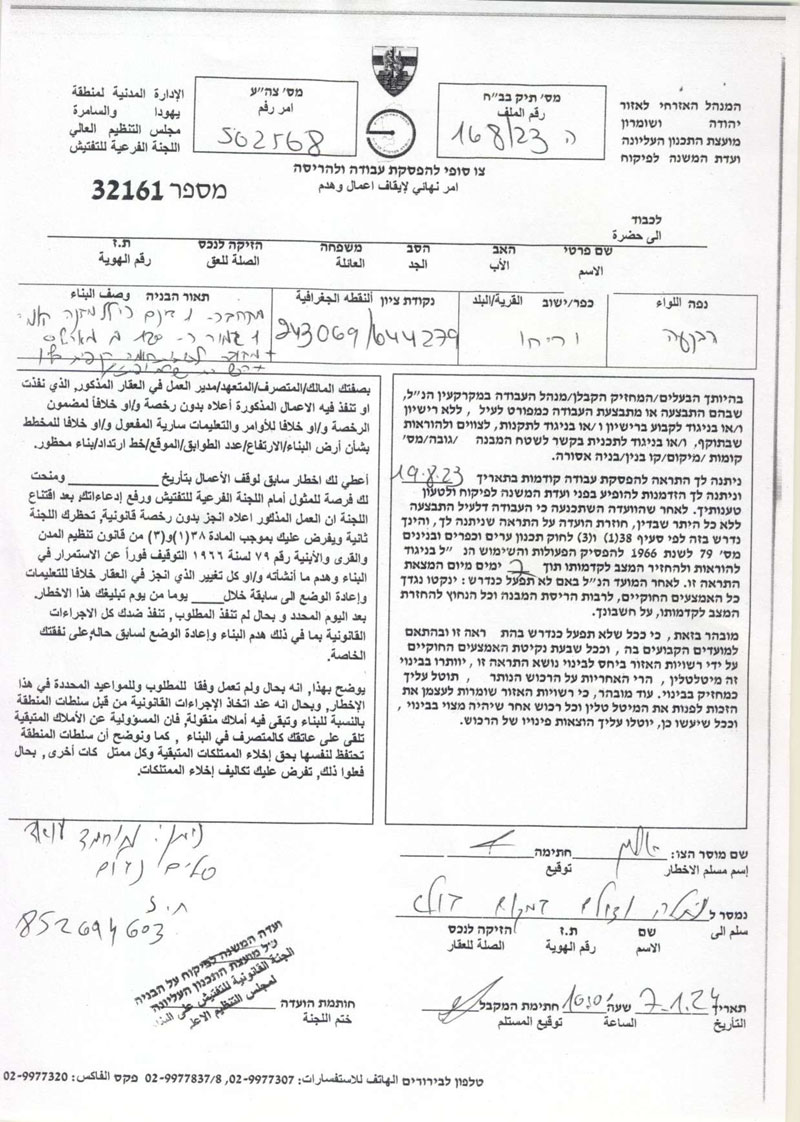 המנהל האזרחי לאזור
יהודה ושומרון
מועצת התכנון העליונה
ועדת המשנה לפיקוח
מס׳ תיק בב"ח
رقم الملف
ה 168/23
מס׳ צה"ע
امر رقم
562568
الإدارة المدنية لمنطقة
يهودا والسامرة
مجلس التنظيم العالي
اللجنة الفرعية للتفتيش
צו סופי להפסקת עבודה ולהריסה
امر نهائي لإيقاف اعمال وهدم
מספר 32161
לכבוד
الى حضرة
שם פרטי האב הסב משפחה הזיקה לנכס ת.ז
الاسم الأب الجد العائلة الصلة للعق رقم الهوية
נפה اللواء כפר/ישוב القرية/البلد נקודת ציון ألنقطه الجغرافية תאור הבניה وصف البناء
יריחו 243069/644279
בהיותך הבעלים/המחזיק הקבלן/מנהל העבודה במקרקעין הנ"ל,
שבהם התבצעה או מתבצעת העבודה כמפורט לעיל, ללא רישיון
ו/או בניגוד לקבוע ברישיון ו/או בניגוד לתקנות, לצווים ולהוראות
שבתוקף, ו/או בניגוד לתכנית בקשר לשטח המבנה /גובה/מס׳
קומות /מיקום/קו בנין/בניה אסורה.
ניתנה לך התראה להפסקת עבודה קודמות בתאריך 19.8.23
וניתנה לך הזדמנות להופיע בפני ועדת המשנה לפיקוח ולטעון
טענותיך. לאחר שהוועדה השתכנעה כי העבודה דלעיל התבצעה
ללא כל היתר שבדין, חוזרת הועדה על התראה שניתנה לך, והינך
נדרש בזה לפי סעיף 38 (1) ו(3) לחוק תכנון ערים וכפרים ובנינים
מס׳ 79 לשנת 1966 להפסיק הפעולות והשימוש הנ"ל בניגוד
להוראות ולהחזיר המצב לקדמותו תוך 7 ימים מיום המצאת
התראה זו. לאחר המועד הנ"ל באם לא תפעל כנדרש: ינקטו נגדך
כל האמצעים החוקיים, לרבות הריסת המבנה וכל הנחוץ להחזרת
המצב לקדמותו, על חשבונך.
מובהר בזאת, כי ככל שלא תפעל כנדרש בהת ראה זו ובהתאם
למועדים הקבועים בה, וככל שבעת נקיטת האמצעים החוקיים
על ידי רשויות האזור ביחס לבינוי נושא התראה זו, יוותרו בבינוי
זה מיטלטלין, הרי האחריות על הרכוש הנותר, תוטל עליך
כמחזיק בבינוי. עוד מובהר, כי רשויות האזור שומרות לעצמן את
הזכות לפנות את המיטל טלין וכל רכוש אחר שיהיה מצוי בבינוי,
וככל שיעשו כן, יוטלו עליך הוצאות פינויו של הרכוש.
بصفتك المالك/المتصرف/المتعهد/مدير العمل في العقار المذكور, الذي نفذت
او تنفذ فيه الاعمال المذكورة أعلاه بدون رخصة و/او خلافاً لمضمون
الرخصة و/او خلافا للأوامر والتعليمات سارية المفعول و/او خلافا للمخطط
بشأن أرض البناء/الارتفاع/عدد الطوابق/الموقع/خط ارتداد/بناء محظور.
أعطي لك اخطار سابق لوقف الأعمال بتأريخ ______ ومنحت
لك فرصة للمثول أمام اللجنة الفرعية للتفتيش ورفع إدعاءاتك, بعد اقتناع
اللجنة ان العمل المذكور اعلاه انجز بدون رخصة قانونية, تحظرك اللجنة
ثانية ويفرض عليك بموجب المادة ٣٨(١)و(٣) من قانون تنظيم المدن
والقرى والأبنية رقم ٧٩ لسنة ١٩٦٦ التوقيف فوراً عن الاستمرار في
البناء وهدم ما أنشأته و/او كل تغيير الذي انجز في العقار خلافا للتعليمات
وإعادة الوضع الى سابقة خلال_____ يوما من يوم تبليغك هذا الاخطار.
بعد اليوم المحدد و بحال لم تنفذ المطلوب, تنفذ ضدك كل الاجراءات
القانونية بما في ذلك هدم البناء وإعادة الوضع لسابق حاله, على نفقتك
الخاصة.
يوضح بهذا, انه بحال ولم تعمل وفقا للمطلوب وللمواعيد المحددة في هذا
الإخطار, وبحال انه عند اتخاذ الإجراءات القانونية من قبل سلطات المنطقة
بالنسبة للبناء وتبقى فيه أملاك منقولة, فان المسؤولية عن الأملاك المتبقية
تلقى على عاتقك كالمتصرف في البناء, كما ونوضح أن سلطات المنطقة
تحتفظ لنفسها بحق إخلاء الممتلكات المتبقية وكل ممتل كات أخرى, بحال
فعلوا ذلك, تفرض عليك تكاليف إخلاء الممتلكات.
ת.ז
852694603
שם מוסר הצו: חתימה
إسم مسلم الاخطار توقيع
נמסר ל
سلم الى
שם ת.ז הזיקה לנכס
الاسم رقم الهوية الصلة للعقار
תאריך 7.1.24 שעה 10:50 חתימת המקבל
التأريخ الساعة توقيع المستلم
חותמת הועדה
ختم اللجنة
ועדת המשנה לפיקוח על הבניה
מועצת התכנון העליונה
טלפון לבירורים الهاتف للاستفسارات: 02-9977307, 02-9977837/8 פקס الفاكس: 02-9977320